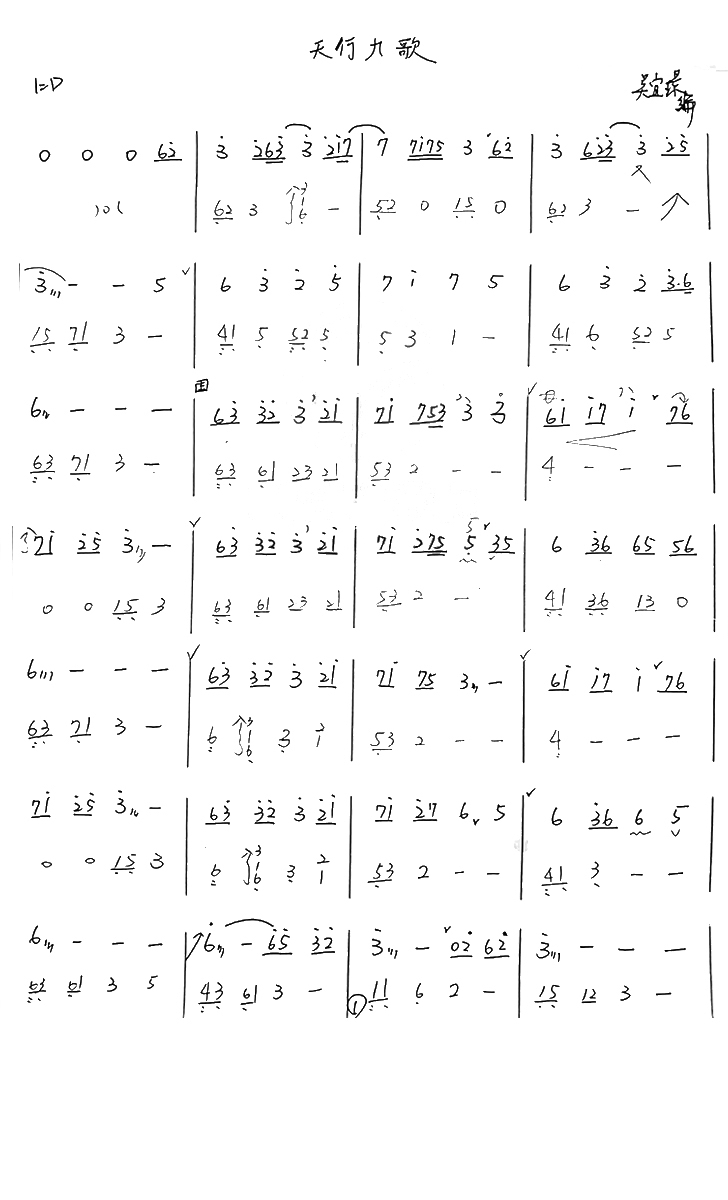 天行九歌
1=D
吴宜
编
0 0 0 62 | 3 263 3 217 | 7 7175 3 62 | 3 623 3 25
62 3 316 - | 52 0 15 0 | 62 3 -
3 - - 5 | 6 3 2 5 | 7 1 7 5 | 6 3 2 3.6
15 71 3 - | 41 5 52 5 | 5 3 1 - | 41 6 52 5
6 - - - | 63 32 3 21 | 71 753 3 3 | 61 17 1 76
63 71 3 - | 63 61 23 21 | 53 2 - - | 4 - - -
71 25 3 - | 63 32 3 21 | 71 275 5 35 | 6 36 65 56
0 0 15 3 | 63 61 23 21 | 53 2 - | 41 36 13 0
6 - - - | 63 32 3 21 | 71 75 3 - | 61 17 1 76
63 71 3 - | 6 316 3 31 | 53 2 - - | 4 - - -
71 25 3 - | 63 32 3 21 | 71 27 6 5 | 6 36 6 5
0 0 15 3 | 6 316 3 21 | 53 2 - - | 41 3 - -
6 - - - | 6 - 65 32 | 3 - 02 62 | 3 - - -
63 61 3 5 | 43 61 3 - | ① 11 6 2 - | 15 12 3 -